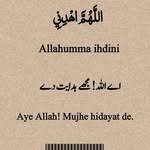 اَللّٰهُمَّ اهْدِنِي
Allahumma ihdini
اے اللہ! مجھے ہدایت دے
Aye Allah! Mujhe hidayat de.